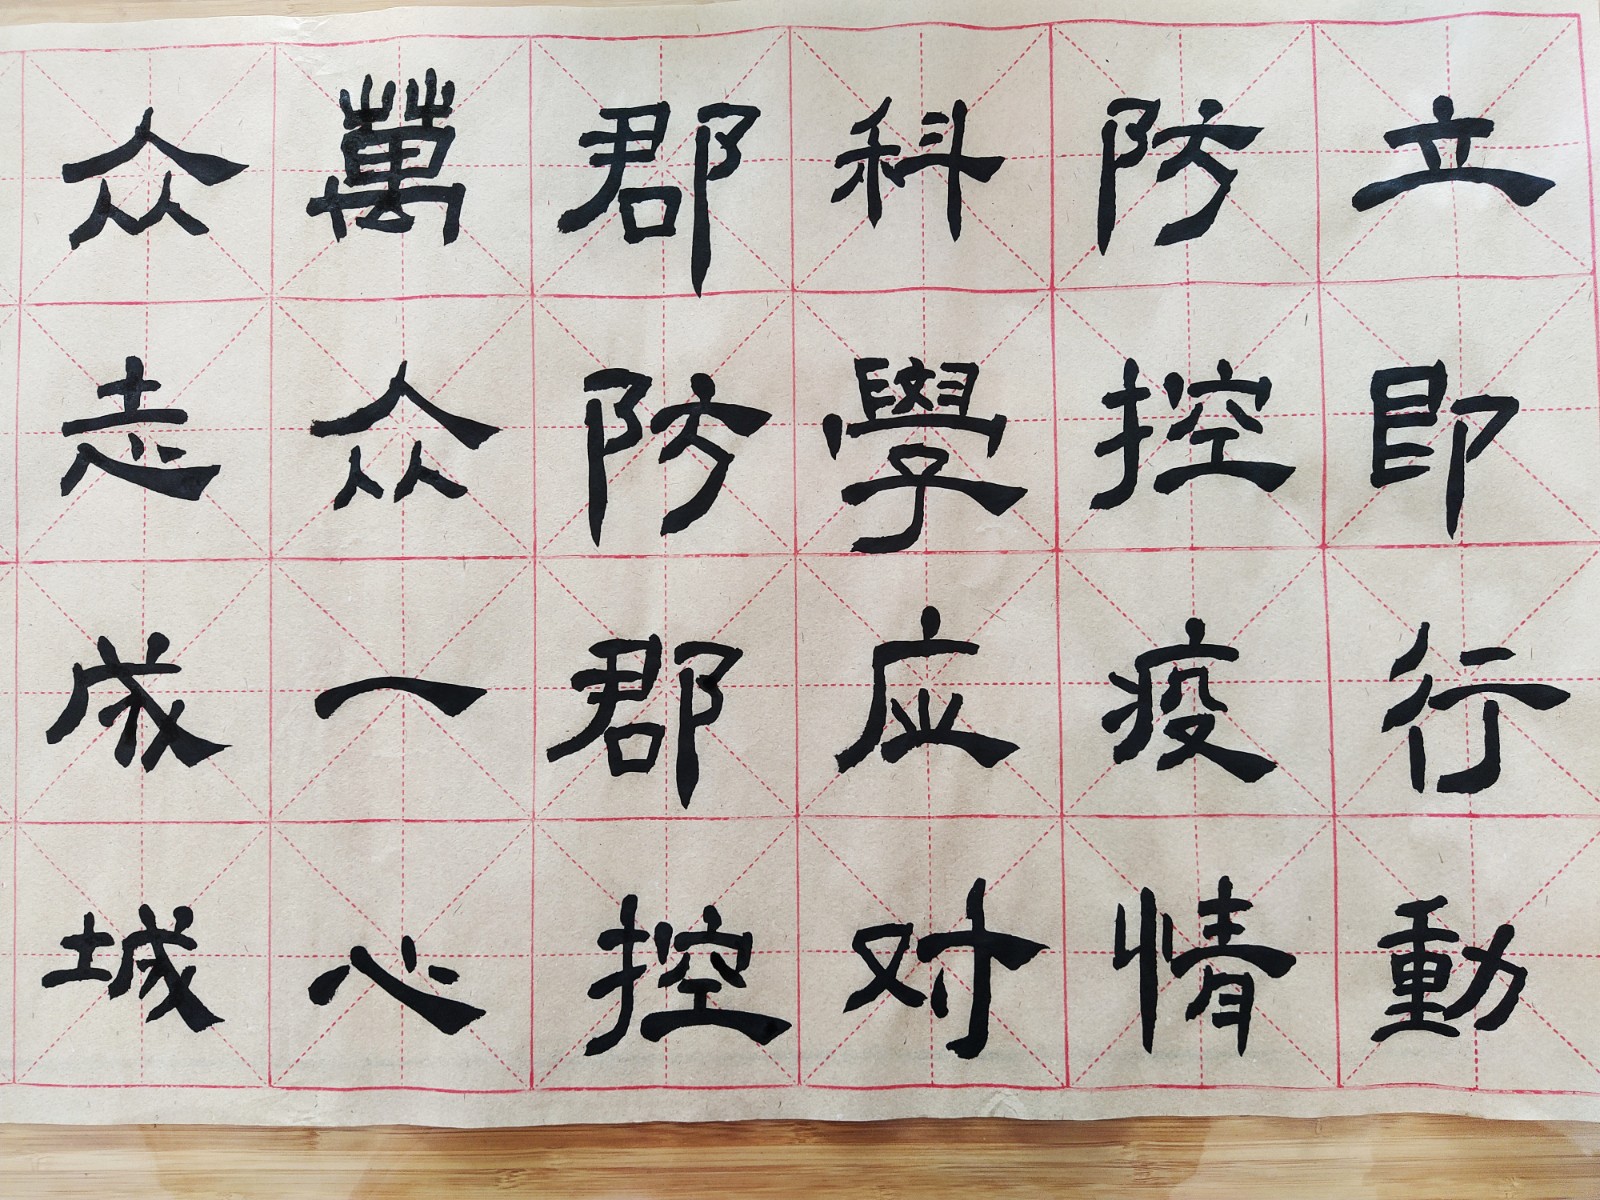 立即行動
防控疫情
科學应对
郡防郡控
萬众一心
众志成城